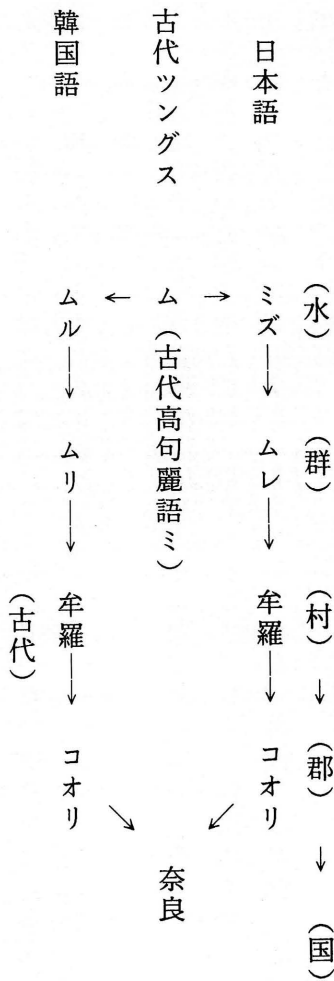 (水) (群) (村) → (郡) → (国)
日本語 ミズ → ムレ → 牟羅 → コオリ
古代ツングス ム (古代高句麗語ミ) 奈良
韓国語 ムル → ムリ → 牟羅 → コオリ
(古代)